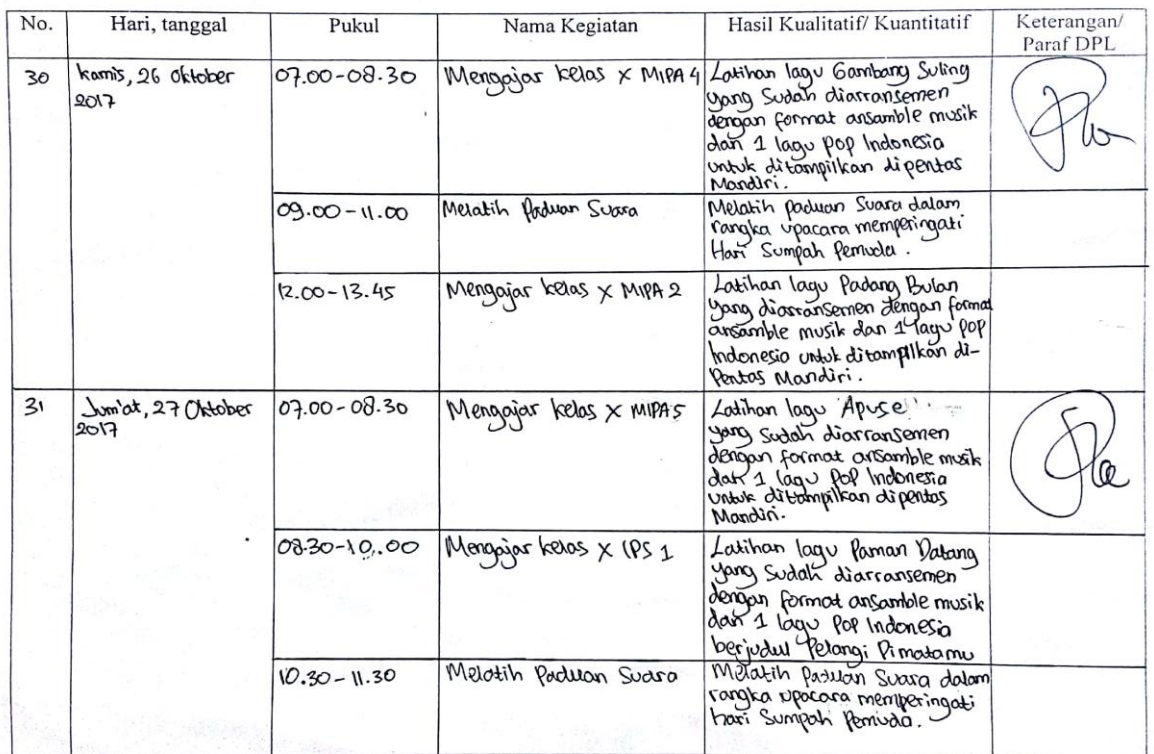 No. Hari, tanggal Pukul Nama Kegiatan Hasil Kualitatif/ Kuantitatif Keterangan/
Paraf DPL
30 Kamis, 26 Oktober 07.00-08.30 Mengajar kelas X MIPA 4 Latihan lagu Gambang Suling
2017 yang sudah diarransemen
dengan format ansamble musik
dan 1 lagu pop Indonesia
untuk ditampilkan dipentas
Mandiri.
09.00-11.00 Melatih Paduan Suara Melatih paduan Suara dalam
rangka upacara memperingati
Hari Sumpah Pemuda.
12.00-13.45 Mengajar kelas X MIPA 2 Latihan lagu Padang Bulan
yang diarransemen dengan format
ansamble musik dan 1 lagu pop
Indonesia untuk ditampilkan di-
Pentas Mandiri.
31 Jum'at, 27 Oktober 07.00-08.30 Mengajar kelas X MIPA 5 Latihan lagu Apuse
2017 yang sudah diarransemen
dengan format ansamble musik
dan 1 lagu Pop Indonesia
untuk ditampilkan dipentas
Mandiri.
08.30-10.00 Mengajar kelas X IPS 1 Latihan lagu Paman Datang
yang sudah diarransemen
dengan format ansamble musik
dan 1 lagu Pop Indonesia
berjudul Pelangi Dimatamu
10.30-11.30 Melatih Paduan Suara Melatih Paduan Suara dalam
rangka upacara memperingati
hari Sumpah Pemuda.